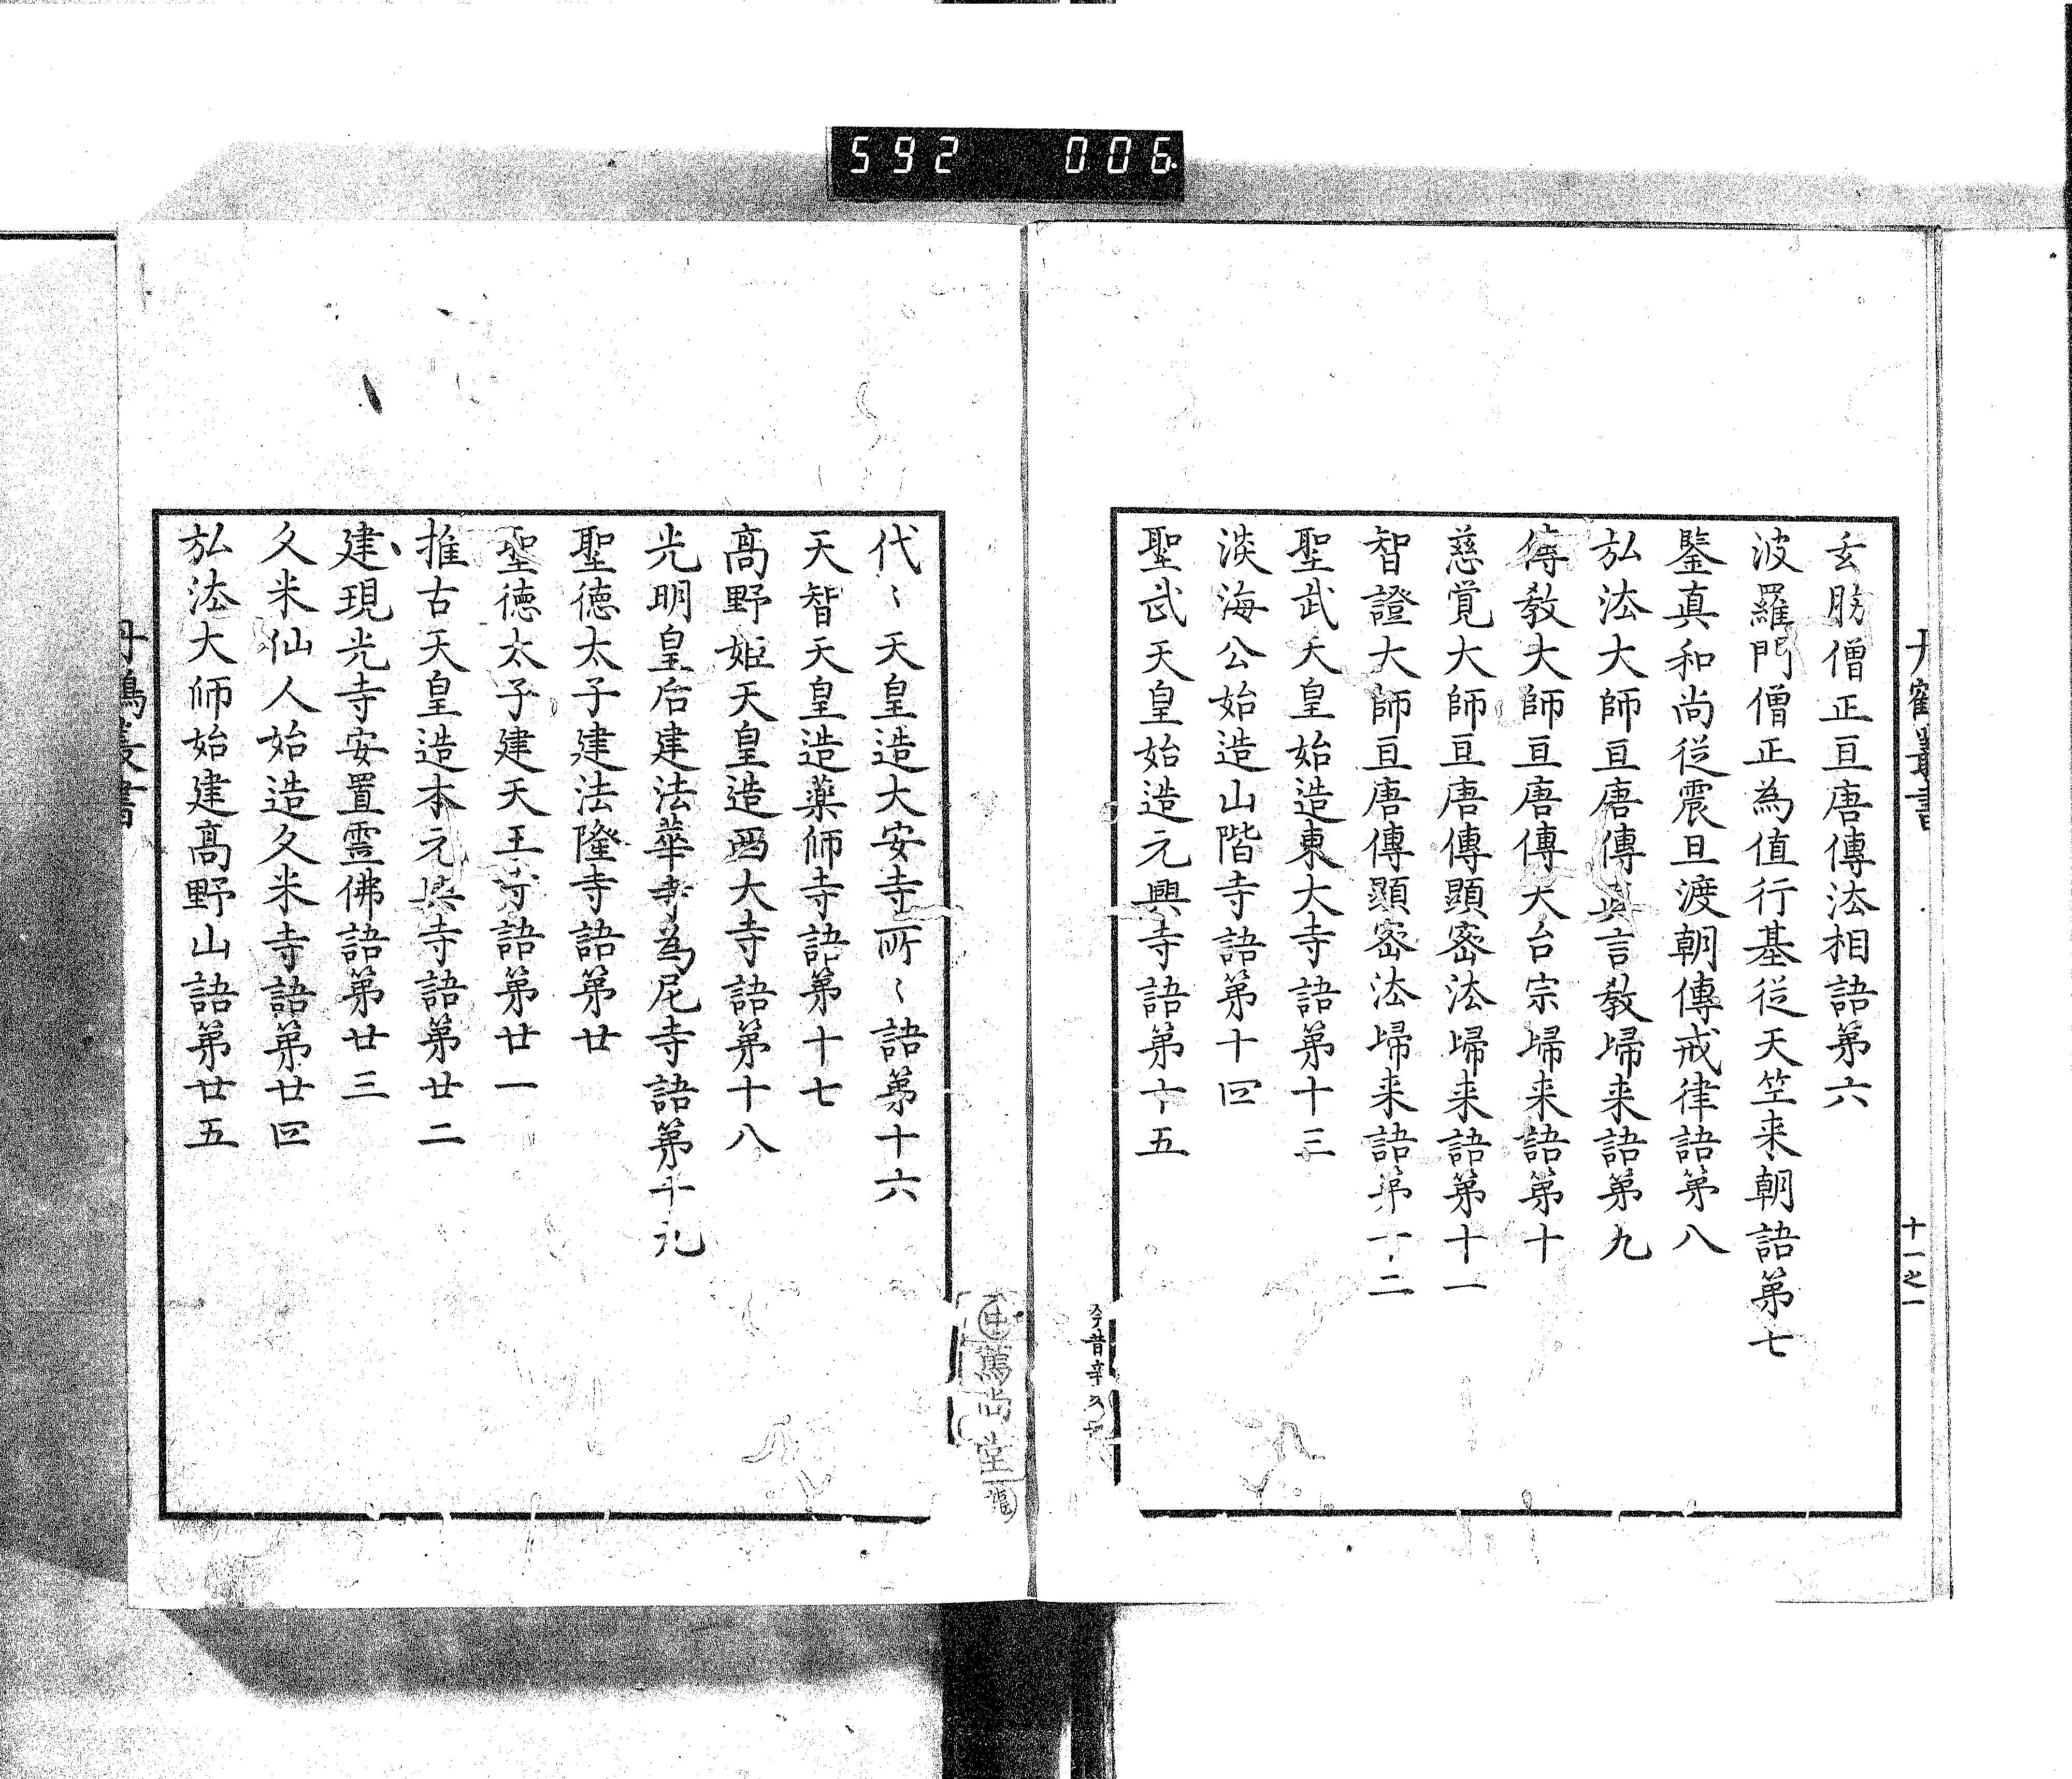 592 006
丹鶴叢書
十一之一
玄昉僧正亘唐傳法相語第六
波羅門僧正為值行基従天竺来朝語第七
鑒真和尚従震旦渡朝傳戒律語第八
弘法大師亘唐傳真言教歸来語第九
傳教大師亘唐傳天台宗歸来語第十
慈覚大師亘唐傳顕密法歸来語第十一
智證大師亘唐傳顕密法歸来語第十二
聖武天皇始造東大寺語第十三
淡海公始造山階寺語第十四
聖武天皇始造元興寺語第十五
代〻天皇造大安寺所〻語第十六
天智天皇造薬師寺語第十七
高野姫天皇造西大寺語第十八
光明皇后建法華寺為尼寺語第十九
聖徳太子建法隆寺語第廿
聖徳太子建天王寺語第廿一
推古天皇造本元興寺語第廿二
建現光寺安置霊佛語第廿三
久米仙人始造久米寺語第廿四
弘法大師始建高野山語第廿五
丹鶴叢書